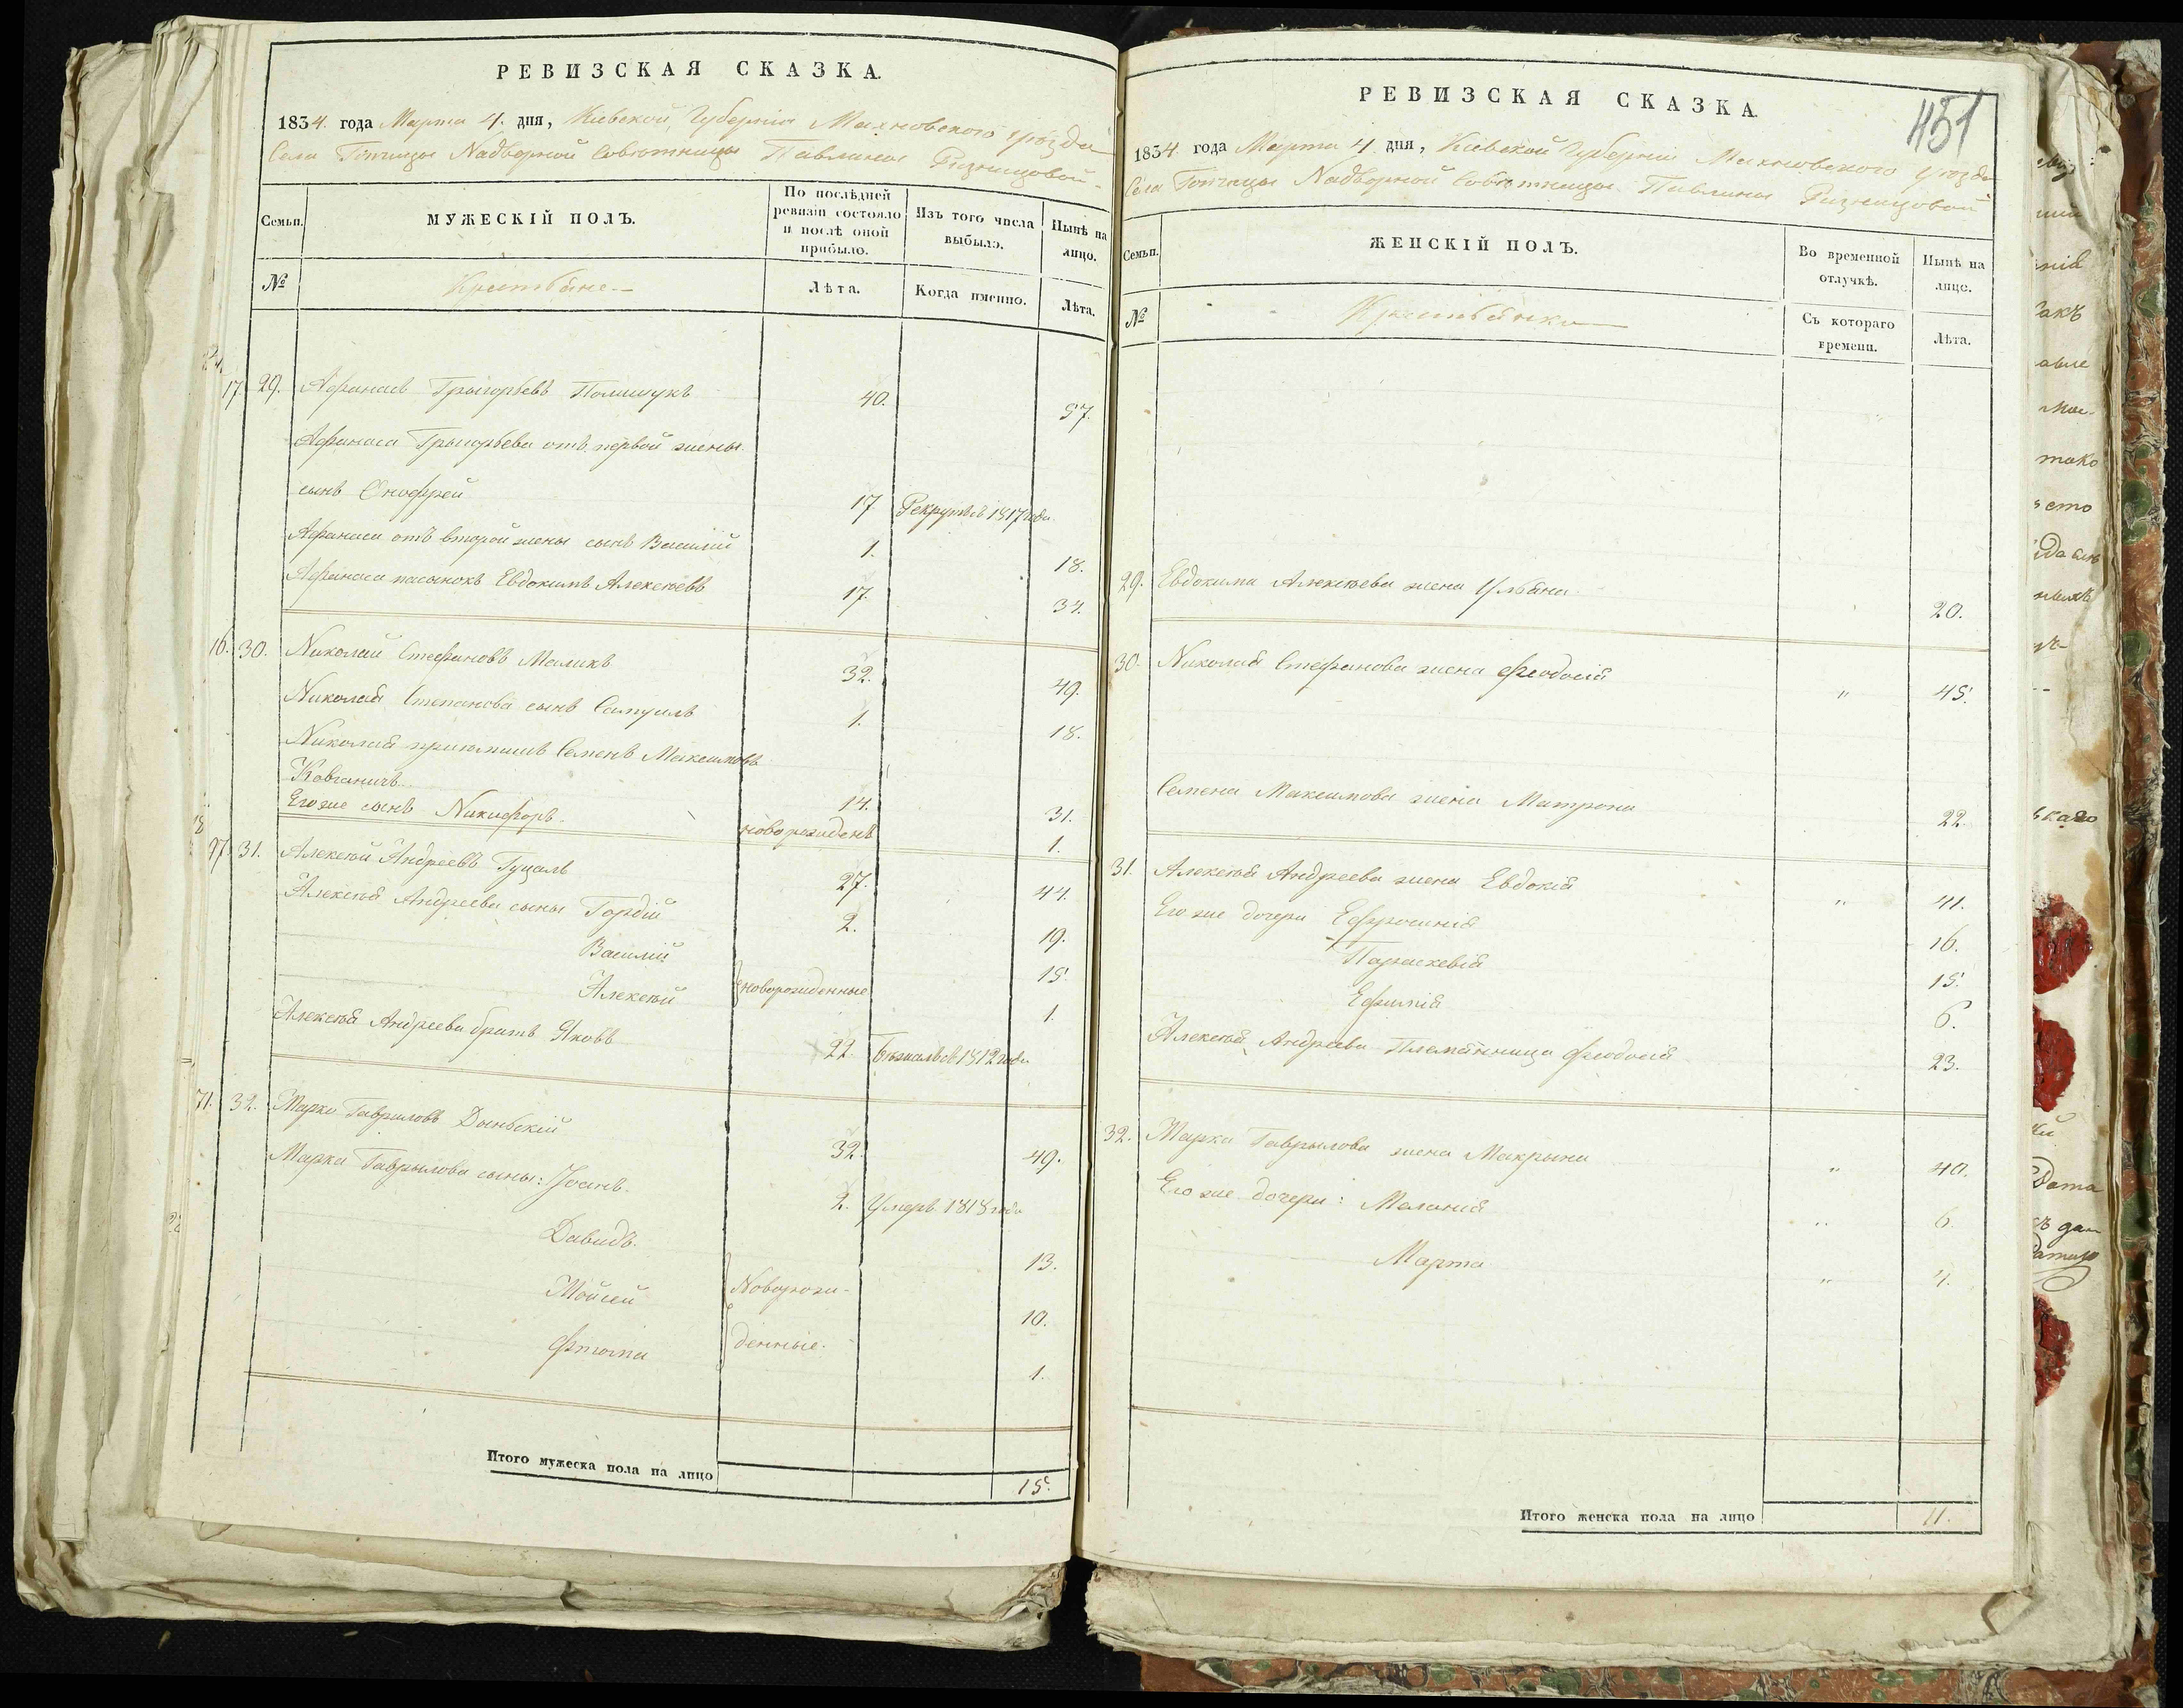 РЕВИЗСКАЯ СКАЗКА.
1834. года Марта 4. дня, Киевской Губернии Махновского уезда
Села Топчицы Nадворной Советницы Павлины Ризницовой
Семьи.
МУЖЕСКІЙ ПОЛЪ.
По послѣдней ревизіи состояло и послѣ оной прибыло.
Изъ того числа выбыло.
Нынѣ на лицо.
№
Крестьяне
Лѣта.
Когда именно.
Лѣта.
17. 29. Афанасъ Грыгорьевъ Полищукъ 40. 57.
Афанаса Грыгорьева отъ первой жены
сынъ Онофрей 17 Рекрутъ въ 1817 года
Афанаса отъ второй жены сынъ Василій 1. 18.
Афанаса пасынокъ Евдокимъ Алексѣевъ 17. 34.
16. 30. Nиколай Стефановъ Маликъ 32. 49.
Nиколая Степанова сынъ Самуилъ 1. 18.
Nиколая приіомышъ Семенъ Максимовъ
Ковганичъ 14. 31.
Его же сынъ Nикифоръ новорожденъ 1.
97. 31. Алексѣй Андреевъ Гуцалъ 27. 44.
Алексѣя Андреева сыны Гордій 2. 19.
Василій 15.
Алексѣй новорожденные 1.
Алексѣя Андреева братъ Яковъ 22. Бѣжалъ въ 1812 года
71. 32. Марко Гавриловъ Дынбскій 32. 49.
Марка Гаврылова сыны: Іоанъ. 2. Умеръ 1818 года
Давидъ. 13.
Мойсей Nоворож- 10.
Фтома денные. 1.
Итого мужеска пола на лицо 15.
РЕВИЗСКАЯ СКАЗКА.
451
1834. года Марта 4 дня, Кіевской Губерніи Махновского уезда
Села Топчицы Nадворной Советницы Павлины Ризницовой
Семьи.
ЖЕНСКІЙ ПОЛЪ.
Во временной отлучкѣ.
Нынѣ на лицо.
№
Крестьянки
Съ котораго времени.
Лѣта.
29. Евдокима Алексѣева жена Ульяна 20.
30. Nиколая Стефанова жена Феодосія " 45.
Семена Максимова жена Матрона 22.
31. Алексѣя Андреева жена Евдокія " 41.
Его же дочери Ефросинія 16.
Параскевія 15.
Ефимія 6.
Алексѣя Андреева Племянница Феодосія 23.
32. Марка Гаврылова жена Макрына " 40.
Его же дочери: Меланія " 6.
Марта " 4.
Итого женска пола на лицо 11.